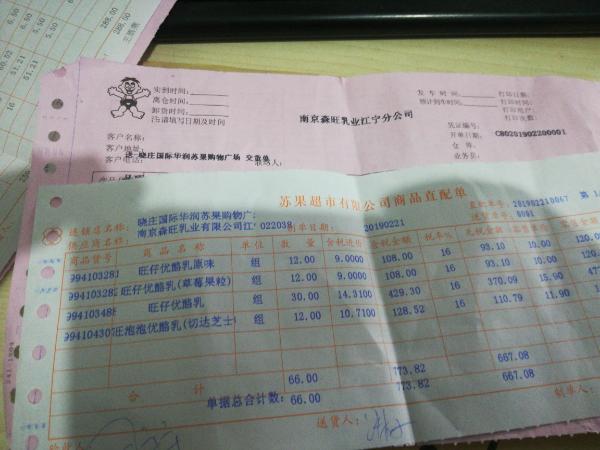 288.00
6.50
6.50
5.50
51.21
51.21
16
16
288.00
实到时间:
离仓时间:
卸货时间:
注请填写日期及时间
南京森旺乳业江宁分公司
发车时间:
预计到车时间:
打印日期:
打印时间:
打印用户:
打印次数:
凭证编号:
开单日期: CB0201902200001
仓库:
业务员:
客户名称:
客户地址:
送-晓庄国际华润苏果购物广场 交货单
客户电话:
联络人:
苏果超市有限公司商品直配单
送铺店名称: 晓庄国际华润苏果购物广:
供应商名称: 南京森旺乳业有限公司江' 022038
制单日期: 20190221
直配单号: 201902210067 第 1/
送货单号: 8001
商品货号 商品名称 单位 数量 含税进价 含税金额 税率% 无税金额 零售单价
99410328 旺仔优酪乳原味 组 12.00 9.0000 108.00 16 93.10 10.00 120.00
99410328 旺仔优酪乳(草莓果粒) 组 12.00 9.0000 108.00 16 93.10 10.00 120.
99410348 旺仔优酪乳 组 30.00 14.3100 429.30 16 370.09 15.90 477
99410430 旺泡泡优酪乳(切达芝士 组 12.00 10.7100 128.52 16 110.79 11.90
合计 66.00 773.82 667.08
单据总合计数: 66.00 773.82 667.08
验收人:
送货人:
制单人: